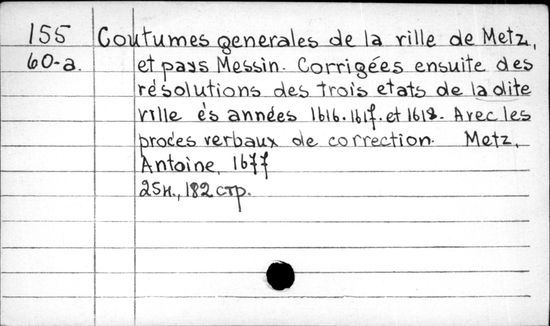 155 Coutumes generales de la ville de Metz,
60-a. et pays Messin. Corrigées ensuite des
résolutions des trois etats de la dite
ville és années 1616. 1617. et 1618. Avec les
proces verbaux de correction. Metz,
Antoine, 1677
25н., 182 стр.